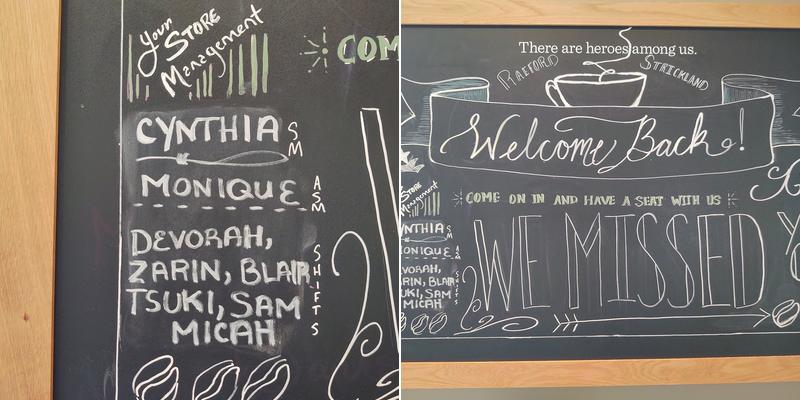 Your
STORE
Management
COM
CYNTHIA SM
MONIQUE ASM
DEVORAH,
ZARIN, BLAIR
TSUKI, SAM
MICAH
SHIFTS
There are heroes among us.
RAEFORD STRICKLAND
Welcome Back!
STORE
Management
COME ON IN AND HAVE A SEAT WITH US
YNTHIA SM
ONIQUE ASM
VORAH,
RIN, BLAIR
UKI, SAM
MICAH
SHIFTS
WE MISSED Y